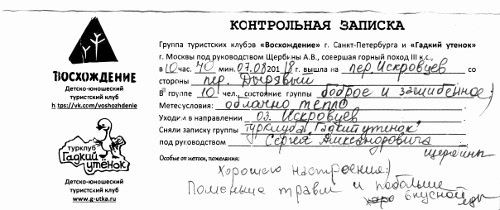 КОНТРОЛЬНАЯ ЗАПИСКА
Группа туристских клубов «Восхождение» г. Санкт-Петербурга и «Гадкий утенок»
г. Москвы под руководством Щербины А.В., совершая горный поход III к.с.,
в 10 час. 40 мин. 07.08 2018 г. вышла на пер. Искровцев со
стороны пер. Дырявый
В группе 10 чел., состояние группы бодрое и
Метеоусловия: облачно тепло
Уходим в направлении оз. Искровцев
Сняли записку группы Турклуба "Гадкий утенок"
под руководством Сергея Александровича
Особые отметки, пожелания:
Хорошего настроения:)
Поменьше травм и побольше
вкусной еды
ВОСХОЖДЕНИЕ
Детско-юношеский
туристский клуб
https://vk.com/voshozhdenie
турклуб
Гадкий
утёнок
Детско-юношеский
туристский клуб
www.g-utka.ru